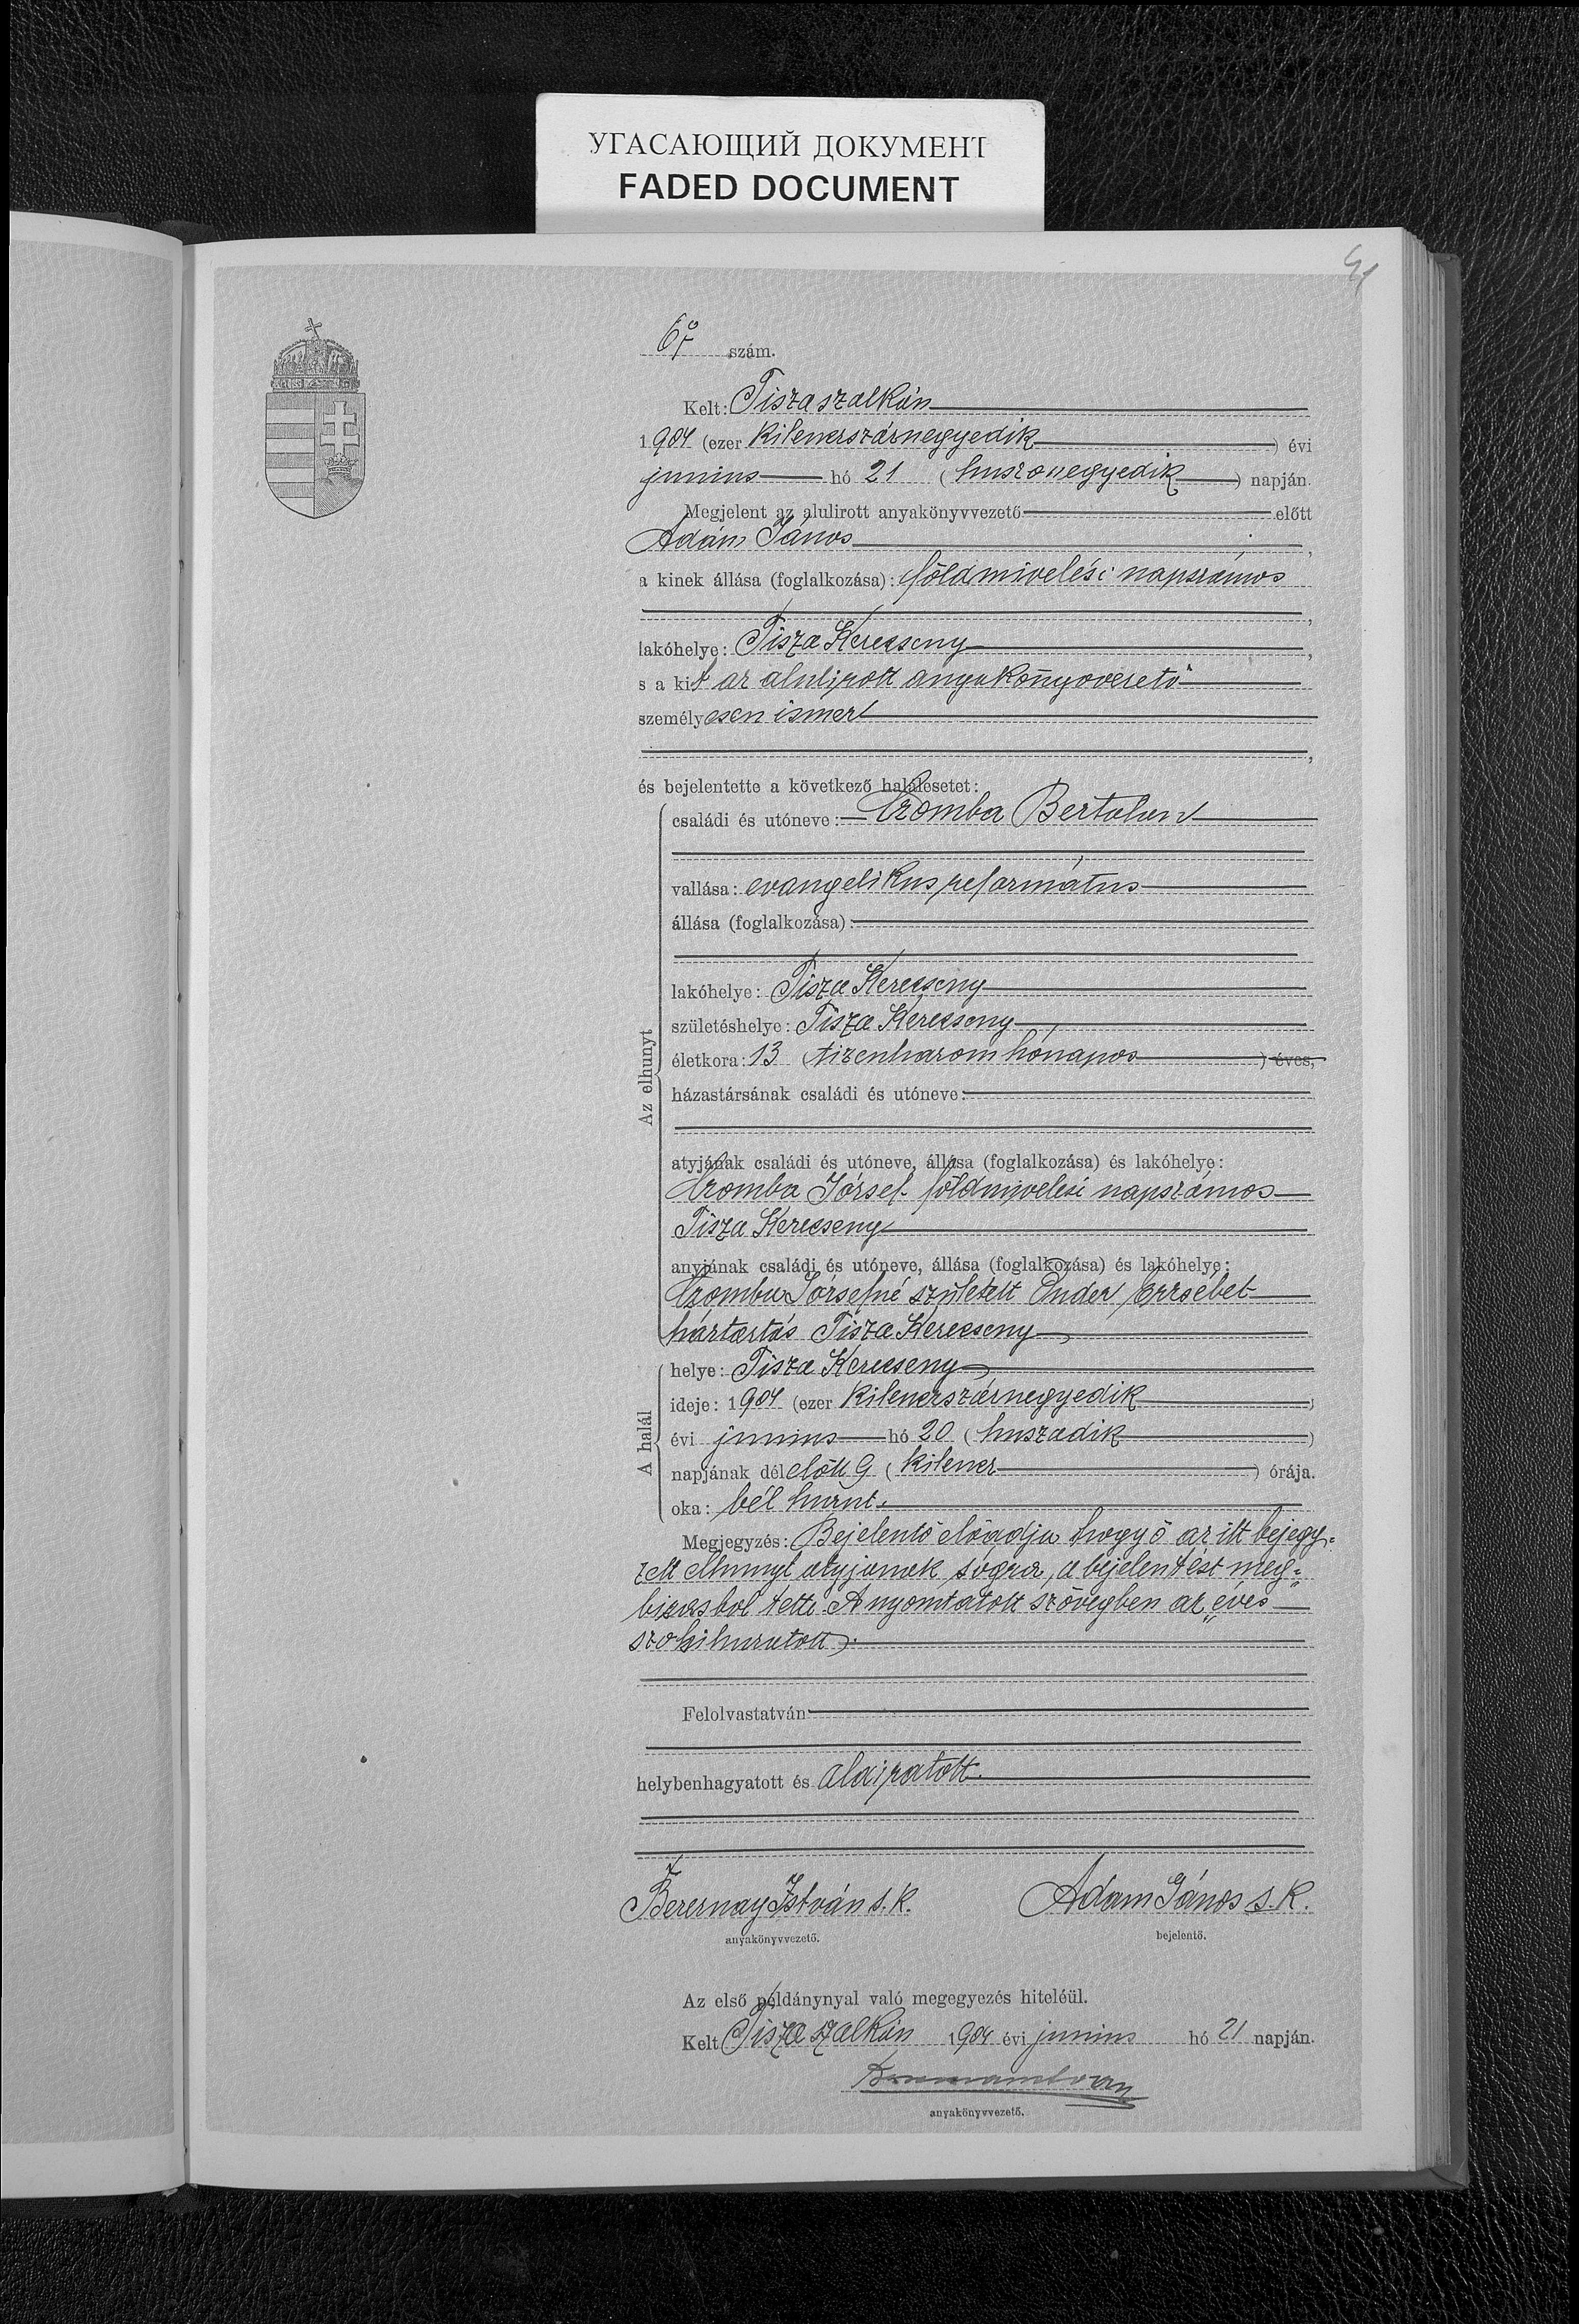 УГАСАЮЩИЙ ДОКУМЕНТ
FADED DOCUMENT
41
67 szám.
Kelt: Tiszaszalkán
1904 (ezer kilenczszáznegyedik) évi
junius hó 21 (huszonegyedik) napján.
Megjelent az alulirott anyakönyvvezető előtt
Adám János,
a kinek állása (foglalkozása): földmivelési napszámos
,
lakóhelye: Tisza Kerecseny,
s a kit az alulirott anyakönyvvezető
személyesen ismer
,
és bejelentette a következő halálesetet:
Az elhunyt
családi és utóneve: Czomba Bertalan
vallása: evangelikus református
állása (foglalkozása):
lakóhelye: Tisza Kerecseny
születéshelye: Tisza Kerecseny
életkora: 13 (tizenharom hónapos) éves,
házastársának családi és utóneve:
atyjának családi és utóneve, állása (foglalkozása) és lakóhelye:
Czomba József földmivelési napszámos
Tisza Kerecseny
anyjának családi és utóneve, állása (foglalkozása) és lakóhelye:
Czomba Józsefné született Erzsébet
háztartás Tisza Kerecseny
A halál
helye: Tisza Kerecseny
ideje: 1904 (ezer kilenczszáznegyedik)
évi junius hó 20 (huszadik)
napjának délelőtt 9 (kilencz) órája.
oka: bél hurut.
Megjegyzés: Bejelentő előadja hogy ő az itt bejegy-
zett elhunyt atyjanak sógora, a bejelentést meg-
bizasbol tette. A nyomtatott szövegben az „éves"
szo kihuzatott.
Felolvastatván
helybenhagyatott és aláiratott.
Berernay István s. k. Adam János s. k.
anyakönyvvezető. bejelentő.
Az első példánynyal való megegyezés hiteléül.
Kelt Tisza szalkán 1904 évi junius hó 21 napján.
anyakönyvvezető.